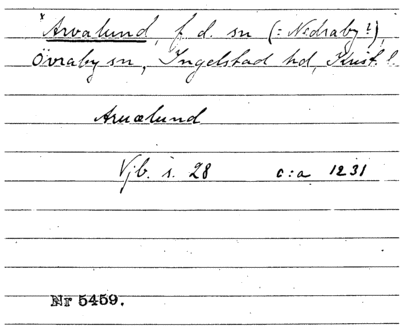 *Arvalund, f. d. sn (: Nedraby?),
Övraby sn, Ingelstad hd, Krist. l.
Aruælund
Vjb. s. 28 c:a 1231
Nr 5459.